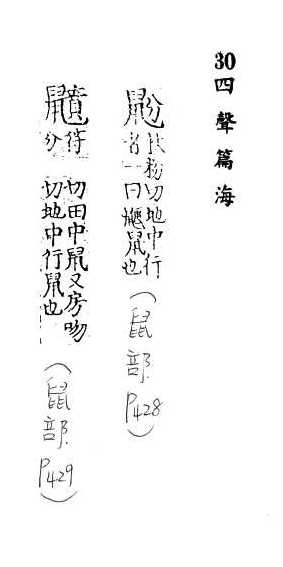 30四聲篇海
鼢扶粉切地中行
者一曰鼴鼠也(鼠部P428)
符
分
切田中鼠又房吻
切地中行鼠也(鼠部P429)